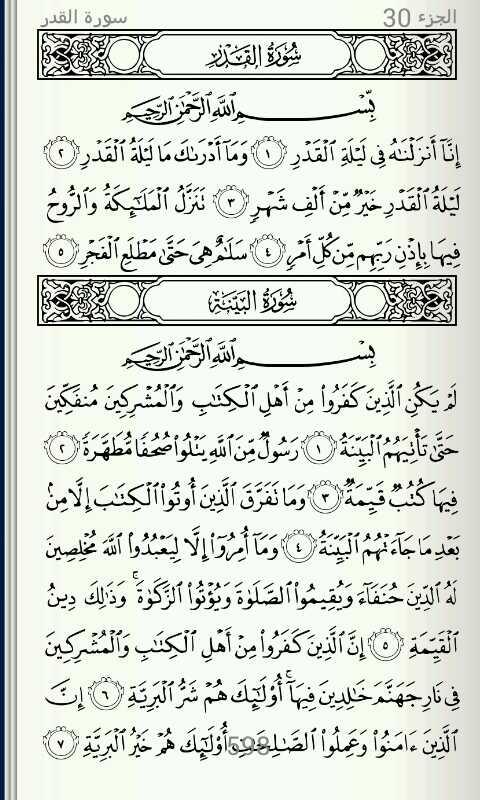 سورة القدر الجزء 30
سُورَةُ القَدْرِ
بِسْمِ ٱللَّهِ ٱلرَّحْمَٰنِ ٱلرَّحِيمِ
إِنَّآ أَنزَلْنَٰهُ فِى لَيْلَةِ ٱلْقَدْرِ ١ وَمَآ أَدْرَىٰكَ مَا لَيْلَةُ ٱلْقَدْرِ ٢
لَيْلَةُ ٱلْقَدْرِ خَيْرٌ مِّنْ أَلْفِ شَهْرٍ ٣ تَنَزَّلُ ٱلْمَلَٰٓئِكَةُ وَٱلرُّوحُ
فِيهَا بِإِذْنِ رَبِّهِم مِّن كُلِّ أَمْرٍ ٤ سَلَٰمٌ هِىَ حَتَّىٰ مَطْلَعِ ٱلْفَجْرِ ٥
سُورَةُ البَيِّنَةِ
بِسْمِ ٱللَّهِ ٱلرَّحْمَٰنِ ٱلرَّحِيمِ
لَمْ يَكُنِ ٱلَّذِينَ كَفَرُوا۟ مِنْ أَهْلِ ٱلْكِتَٰبِ وَٱلْمُشْرِكِينَ مُنفَكِّينَ
حَتَّىٰ تَأْتِيَهُمُ ٱلْبَيِّنَةُ ١ رَسُولٌ مِّنَ ٱللَّهِ يَتْلُوا۟ صُحُفًا مُّطَهَّرَةً ٢
فِيهَا كُتُبٌ قَيِّمَةٌ ٣ وَمَا تَفَرَّقَ ٱلَّذِينَ أُوتُوا۟ ٱلْكِتَٰبَ إِلَّا مِنۢ
بَعْدِ مَا جَآءَتْهُمُ ٱلْبَيِّنَةُ ٤ وَمَآ أُمِرُوٓا۟ إِلَّا لِيَعْبُدُوا۟ ٱللَّهَ مُخْلِصِينَ
لَهُ ٱلدِّينَ حُنَفَآءَ وَيُقِيمُوا۟ ٱلصَّلَوٰةَ وَيُؤْتُوا۟ ٱلزَّكَوٰةَ ۚ وَذَٰلِكَ دِينُ
ٱلْقَيِّمَةِ ٥ إِنَّ ٱلَّذِينَ كَفَرُوا۟ مِنْ أَهْلِ ٱلْكِتَٰبِ وَٱلْمُشْرِكِينَ
فِى نَارِ جَهَنَّمَ خَٰلِدِينَ فِيهَآ ۚ أُو۟لَٰٓئِكَ هُمْ شَرُّ ٱلْبَرِيَّةِ ٦ إِنَّ
ٱلَّذِينَ ءَامَنُوا۟ وَعَمِلُوا۟ ٱلصَّٰلِحَٰتِ أُو۟لَٰٓئِكَ هُمْ خَيْرُ ٱلْبَرِيَّةِ ٧
598